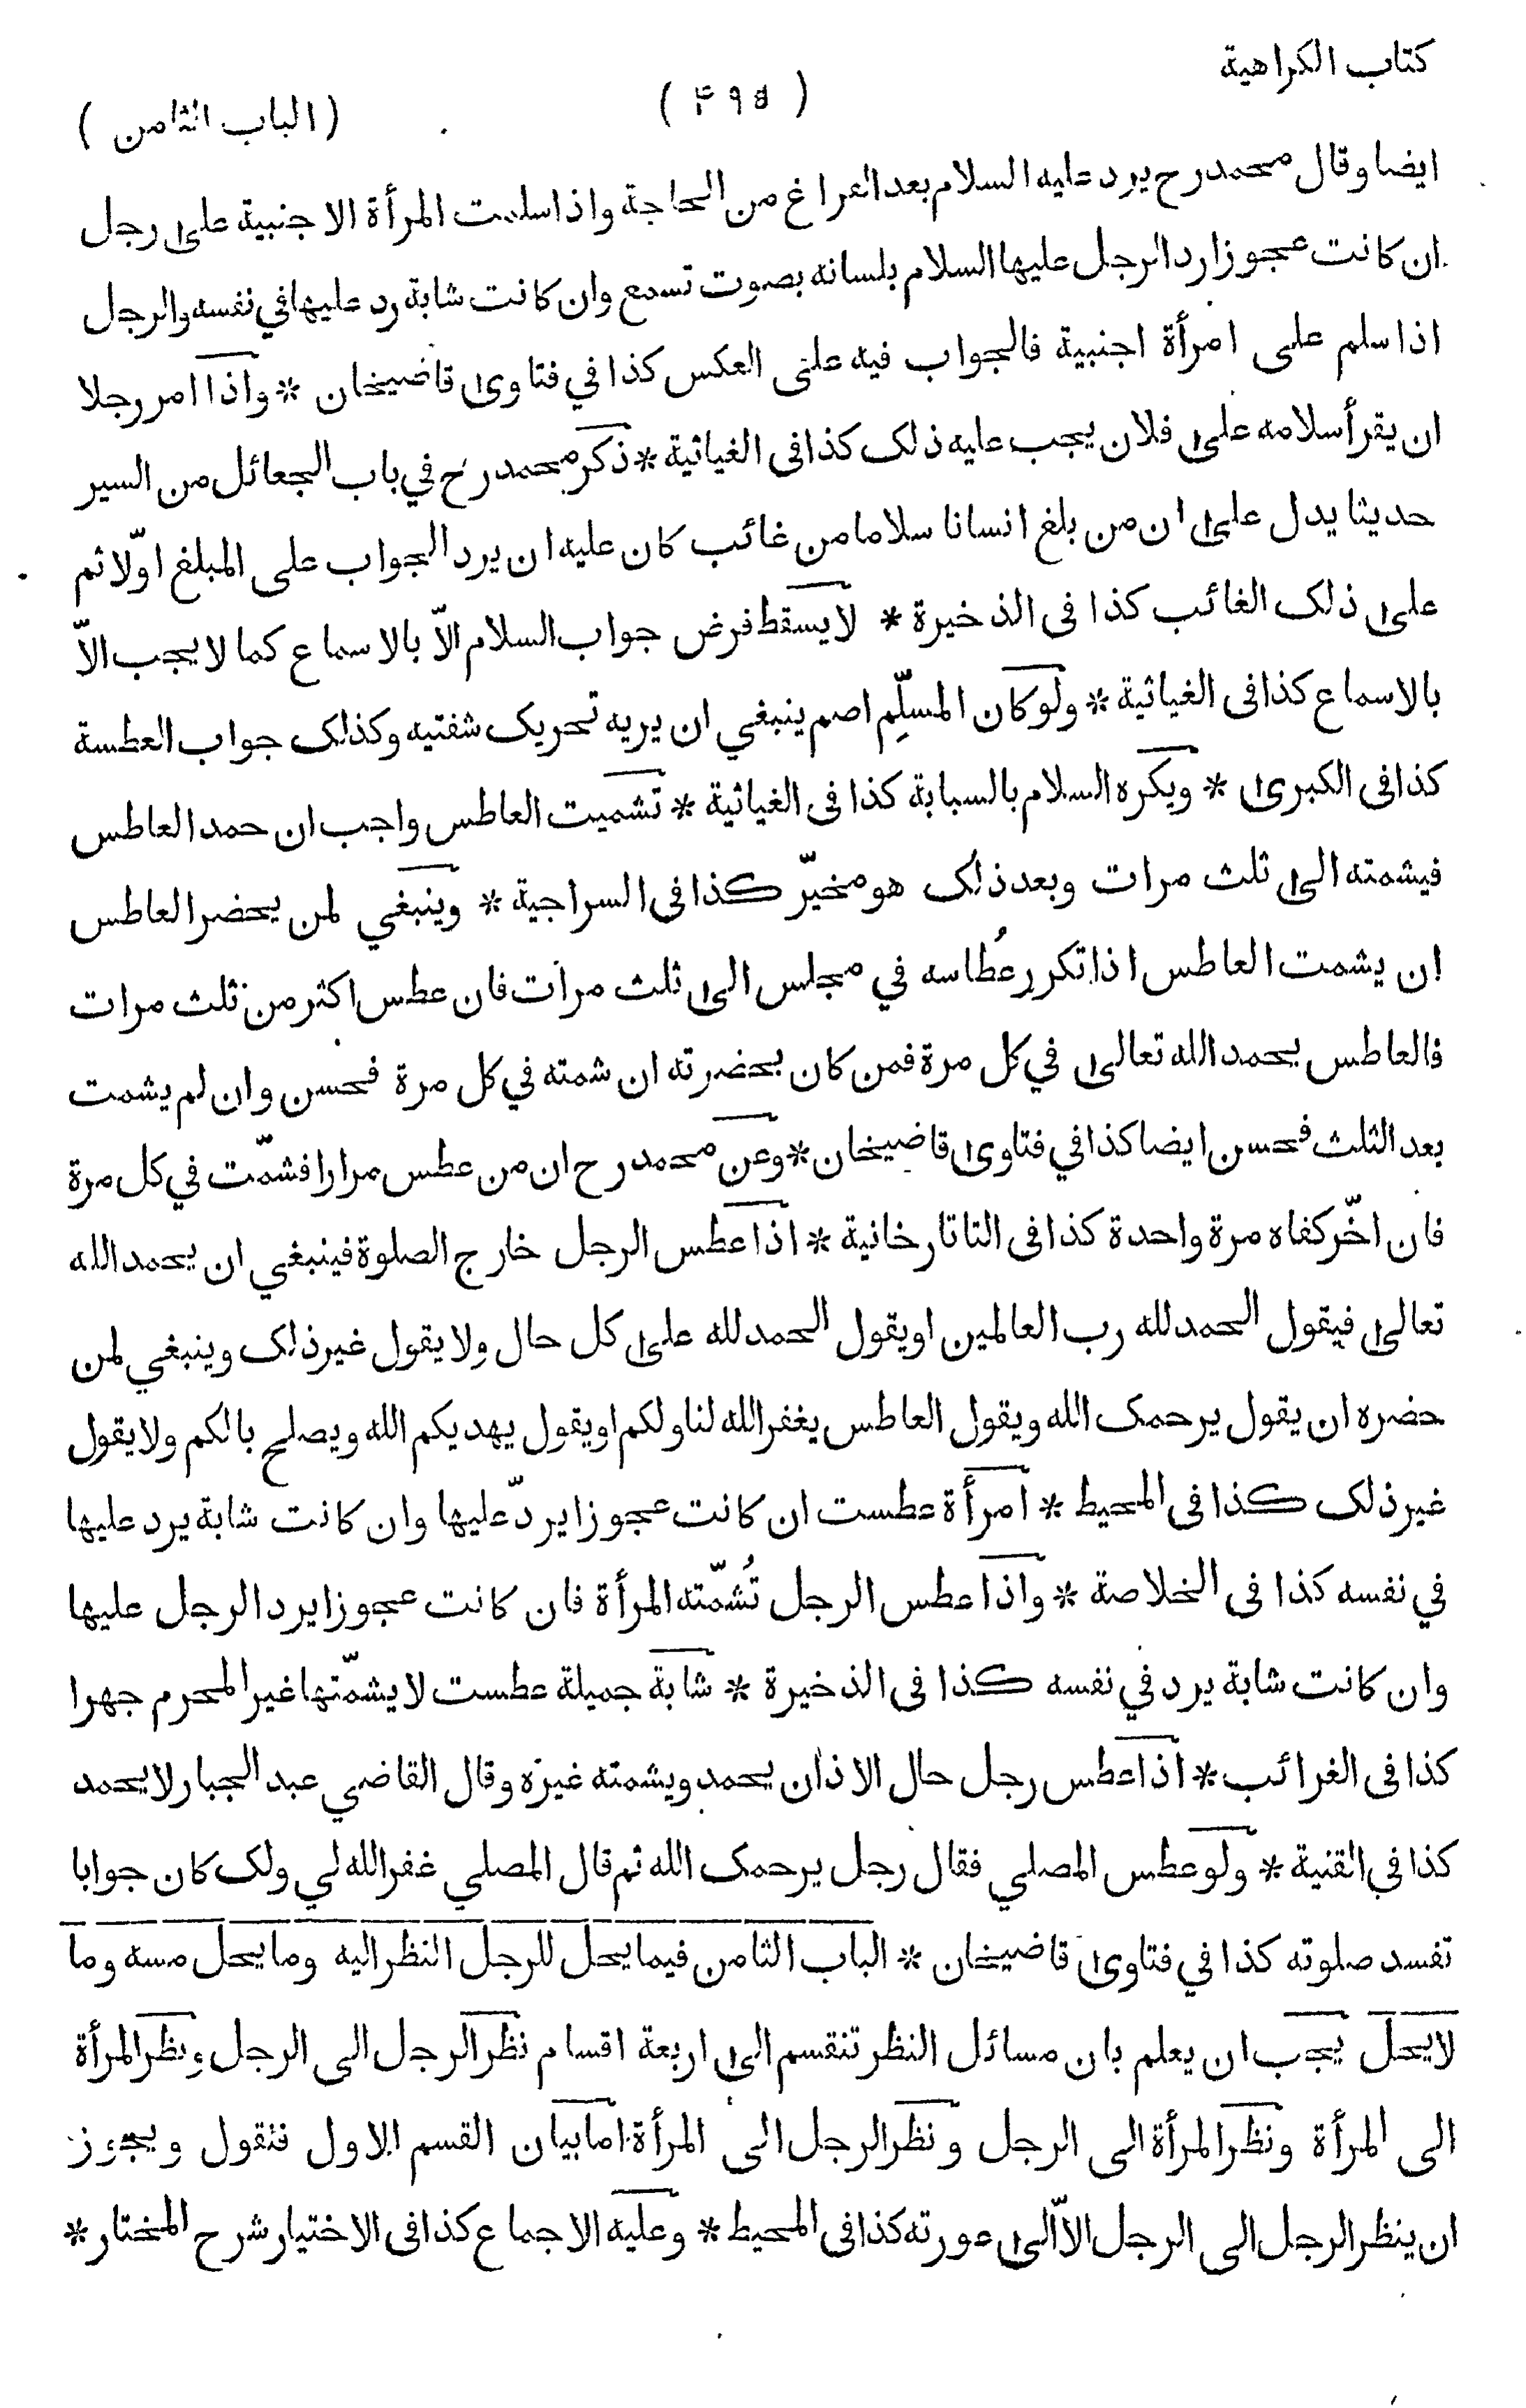 كتاب الكراهية
( ۴۹۵ )
( الباب الثامن )
ايضا وقال محمد رح يرد عليه السلام بعد الفراغ من الحاجة واذا سلمت المرأة الاجنبية على رجل
ان كانت عجوزا رد الرجل عليها السلام بلسانه بصوت تسمع وان كانت شابة رد عليها في نفسه والرجل
اذا سلم على امرأة اجنبية فالجواب فيه على العكس كذا في فتاوى قاضيخان * واذا امر رجلا
ان يقرأ سلامه على فلان يجب عليه ذلك كذا فى الغياثية * ذكر محمد رح في باب الجعائل من السير
حديثا يدل على ان من بلغ انسانا سلاما من غائب كان عليه ان يرد الجواب على المبلغ اوّلا ثم
على ذلك الغائب كذا فى الذخيرة * لا يسقط فرض جواب السلام الاّ بالاسماع كما لا يجب الاّ
بالاسماع كذا فى الغياثية * ولو كان المسلِّم اصم ينبغي ان يريه تحريك شفتيه وكذلك جواب العطسة
كذا فى الكبرى * ويكره السلام بالسبابة كذا فى الغياثية * تشميت العاطس واجب ان حمد العاطس
فيشمته الى ثلث مرات وبعد ذلك هو مخيّر كذا فى السراجية * وينبغي لمن يحضر العاطس
ان يشمت العاطس اذا تكرر عُطاسه في مجلس الى ثلث مرات فان عطس اكثر من ثلث مرات
فالعاطس يحمد الله تعالى في كل مرة فمن كان بحضرته ان شمته في كل مرة فحسن وان لم يشمت
بعد الثلث فحسن ايضا كذا في فتاوى قاضيخان * وعن محمد رح ان من عطس مرارا فشمّت في كل مرة
فان اخّر كفاه مرة واحدة كذا فى التاتارخانية * اذا عطس الرجل خارج الصلوة فينبغي ان يحمد الله
تعالى فيقول الحمد لله رب العالمين او يقول الحمد لله على كل حال ولا يقول غير ذلك وينبغي لمن
حضره ان يقول يرحمك الله ويقول العاطس يغفر الله لنا ولكم او يقول يهديكم الله ويصلح بالكم ولا يقول
غير ذلك كذا فى المحيط * امرأة عطست ان كانت عجوزا يردّ عليها وان كانت شابة يرد عليها
في نفسه كذا فى الخلاصة * واذا عطس الرجل تُشمّته المرأة فان كانت عجوزا يرد الرجل عليها
وان كانت شابة يرد في نفسه كذا فى الذخيرة * شابة جميلة عطست لا يشمّتها غير المحرم جهرا
كذا فى الغرائب * اذا عطس رجل حال الاذان يحمد ويشمته غيره وقال القاضي عبد الجبار لا يحمد
كذا في القنية * ولو عطس المصلي فقال رجل يرحمك الله ثم قال المصلي غفر الله لي ولك كان جوابا
تفسد صلوته كذا في فتاوى قاضيخان * الباب الثامن فيما يحل للرجل النظر اليه وما يحل مسه وما
لا يحل يجب ان يعلم بان مسائل النظر تنقسم الى اربعة اقسام نظر الرجل الى الرجل ونظر المرأة
الى المرأة ونظر المرأة الى الرجل ونظر الرجل الى المرأة اما بيان القسم الاول فنقول ويجوز
ان ينظر الرجل الى الرجل الاّ الى عورته كذا فى المحيط * وعليه الاجماع كذا فى الاختيار شرح المختار *